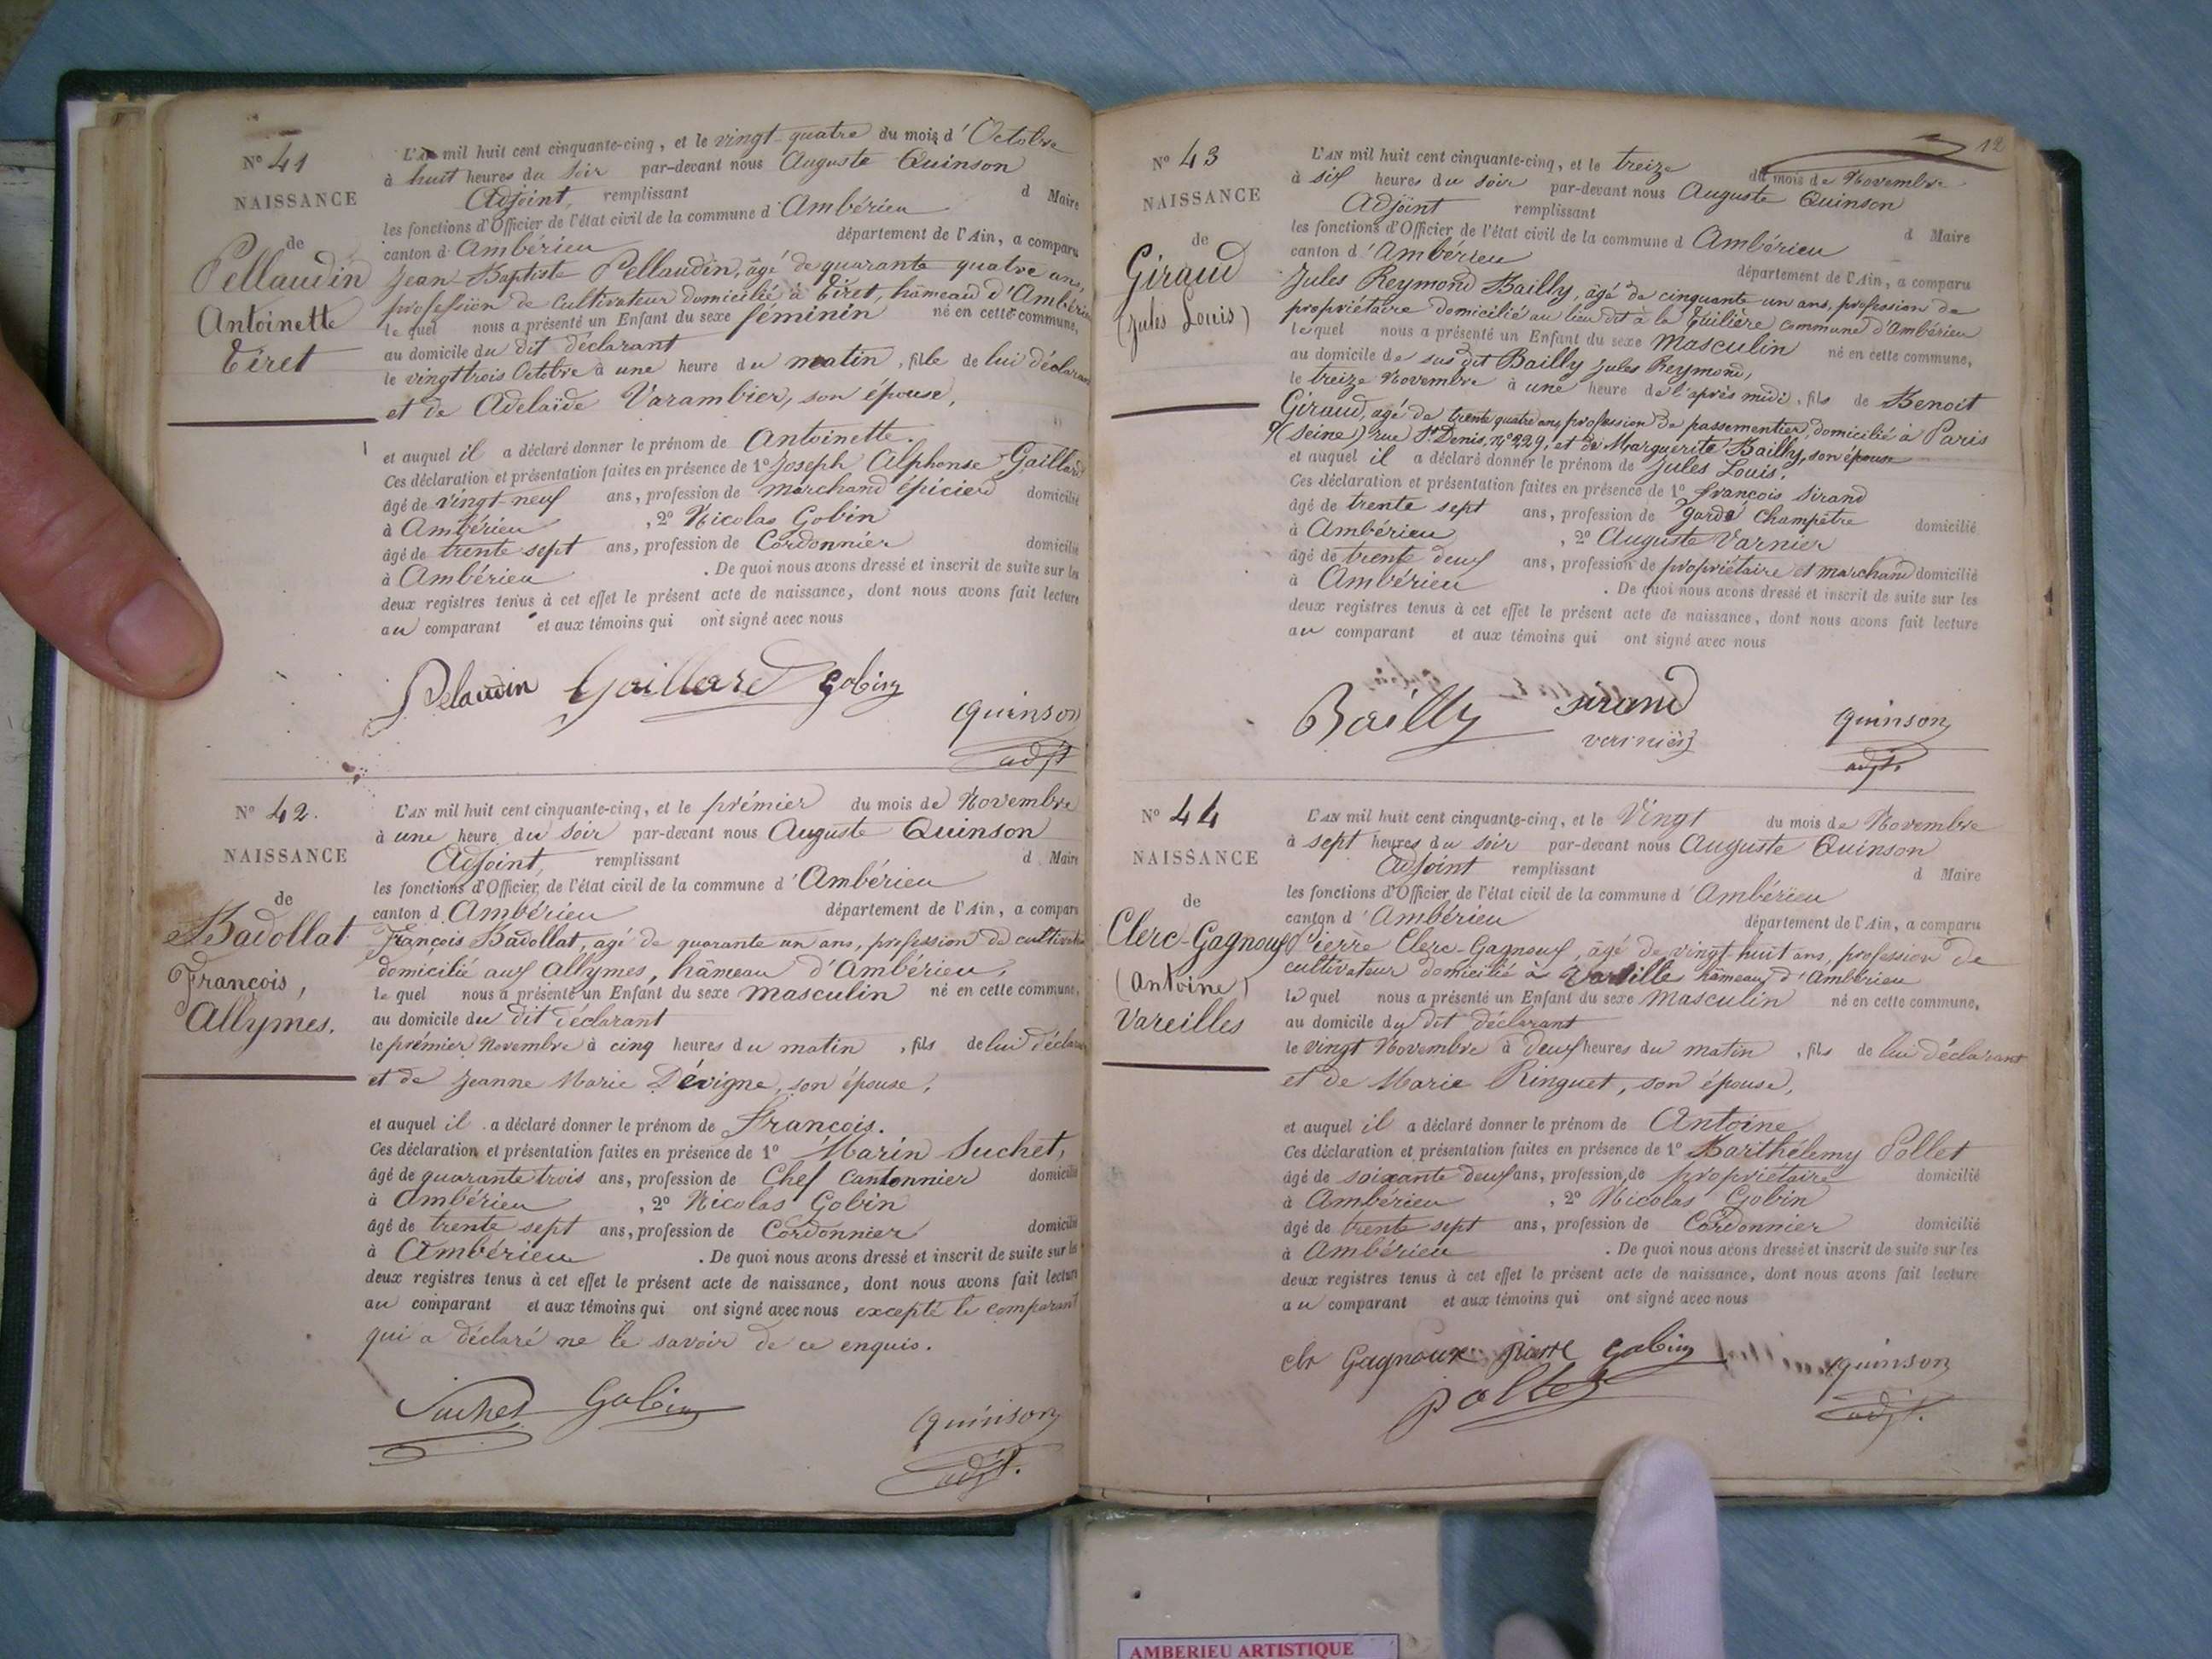 N° 41
NAISSANCE
de
Pellaudin
Antoinette
Tiret
L'AN mil huit cent cinquante-cinq, et le vingt quatre du mois d'Octobre
à huit heures du soir par-devant nous Auguste Quinson
Adjoint, remplissant d Maire
les fonctions d'Officier de l'état civil de la commune d'Ambérieu
canton d'Ambérieu département de l'Ain, a comparu
Jean-Baptiste Pellaudin, âgé de quarante quatre ans,
profession de cultivateur domicilié à Tiret, hâmeau d'Ambérieu
lequel nous a présenté un Enfant du sexe féminin né en cette commune,
au domicile du dit déclarant
le vingt trois Octobre à une heure du matin, fille de lui déclarant
et de Adelaïde Varambier, son épouse,
et auquel il a déclaré donner le prénom de Antoinette.
Ces déclaration et présentation faites en présence de 1° Joseph Alphonse Gaillard
âgé de vingt-neuf ans, profession de marchand épicier domicilié
à Ambérieu, 2° Nicolas Gobin
âgé de trente sept ans, profession de Cordonnier domicilié
à Ambérieu. De quoi nous avons dressé et inscrit de suite sur les
deux registres tenus à cet effet le présent acte de naissance, dont nous avons fait lecture
au comparant et aux témoins qui ont signé avec nous
Pelaudin Gaillard Gobin
quinson
adjt
N° 42.
NAISSANCE
de
Badollat
François,
Allymes.
L'AN mil huit cent cinquante-cinq, et le prémier du mois de Novembre
à une heure du soir par-devant nous Auguste Quinson
Adjoint, remplissant d Maire
les fonctions d'Officier de l'état civil de la commune d'Ambérieu
canton d Ambérieu département de l'Ain, a comparu
François Badollat, agé de quarante un ans, profession de cultivateur
domicilié aux Allymes, hâmeau d'Ambérieu,
lequel nous a présenté un Enfant du sexe masculin né en cette commune,
au domicile du dit déclarant
le prémier Novembre à cinq heures du matin, fils de lui déclarant
et de Jeanne Marie Dévigne, son épouse,
et auquel il a déclaré donner le prénom de François.
Ces déclaration et présentation faites en présence de 1° Marin Suchet,
âgé de quarante trois ans, profession de Chef Cantonnier domicilié
à Ambérieu, 2° Nicolas Gobin
âgé de trente sept ans, profession de Cordonnier domicilié
à Ambérieu. De quoi nous avons dressé et inscrit de suite sur les
deux registres tenus à cet effet le présent acte de naissance, dont nous avons fait lecture
au comparant et aux témoins qui ont signé avec nous excepté le comparant
qui a déclaré ne le savoir de ce enquis.
Suchet Gobin
quinson
adjt.
12
N° 43
NAISSANCE
de
Giraud
(Jules Louis)
L'AN mil huit cent cinquante-cinq, et le treize du mois de Novembre
à six heures du soir par-devant nous Auguste Quinson
Adjoint remplissant d Maire
les fonctions d'Officier de l'état civil de la commune d Ambérieu
canton d'Ambérieu département de l'Ain, a comparu
Jules Reymond Bailly, âgé de cinquante un ans, profession de
propriétaire domicilié au lieu dit à la Tuilière commune d'Ambérieu
lequel nous a présenté un Enfant du sexe masculin né en cette commune,
au domicile de sus dit Bailly Jules Reymond,
le treize Novembre à une heure de l'après midi, fils de Benoit
Giraud, agé de trente quatre ans, profession de passementier, domicilié à Paris
(Seine) rue St Denis, n° 229, et de Marguerite Bailly, son épouse
et auquel il a déclaré donner le prénom de Jules Louis.
Ces déclaration et présentation faites en présence de 1° François Sirand
âgé de trente sept ans, profession de garde Champêtre domicilié
à Ambérieu, 2° Auguste Varnier
âgé de trente deux ans, profession de propriétaire et marchand domicilié
à Ambérieu. De quoi nous avons dressé et inscrit de suite sur les
deux registres tenus à cet effet le présent acte de naissance, dont nous avons fait lecture
au comparant et aux témoins qui ont signé avec nous
Bailly sirand
quinson
adjt.
N° 44
NAISSANCE
de
Clerc-Gagnoux
(Antoine)
Vareilles
L'AN mil huit cent cinquante-cinq, et le Vingt du mois de Novembre
à sept heures du soir par-devant nous Auguste Quinson
Adjoint remplissant d Maire
les fonctions d'Officier de l'état civil de la commune d'Ambérieu
canton d'Ambérieu département de l'Ain, a comparu
Pierre Clerc-Gagnoux, âgé de vingt-huit ans, profession de
cultivateur domicilié à Vareille hâmeau d'Ambérieu
lequel nous a présenté un Enfant du sexe masculin né en cette commune,
au domicile du dit déclarant
le vingt Novembre à deux heures du matin, fils de lui déclarant
et de Marie Ringuet, son épouse,
et auquel il a déclaré donner le prénom de Antoine
Ces déclaration et présentation faites en présence de 1° Barthélemy Pollet
âgé de soixante deux ans, profession de propriétaire domicilié
à Ambérieu, 2° Nicolas Gobin
âgé de trente sept ans, profession de Cordonnier domicilié
à Ambérieu. De quoi nous avons dressé et inscrit de suite sur les
deux registres tenus à cet effet le présent acte de naissance, dont nous avons fait lecture
au comparant et aux témoins qui ont signé avec nous
clr Gagnoux pierre Gobin quinson
pollet adjt.
AMBERIEU ARTISTIQUE